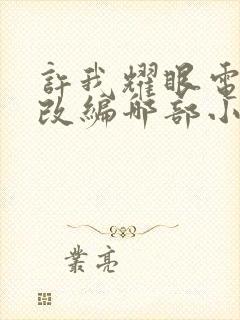 許我耀眼電
改編哪部小
業亮